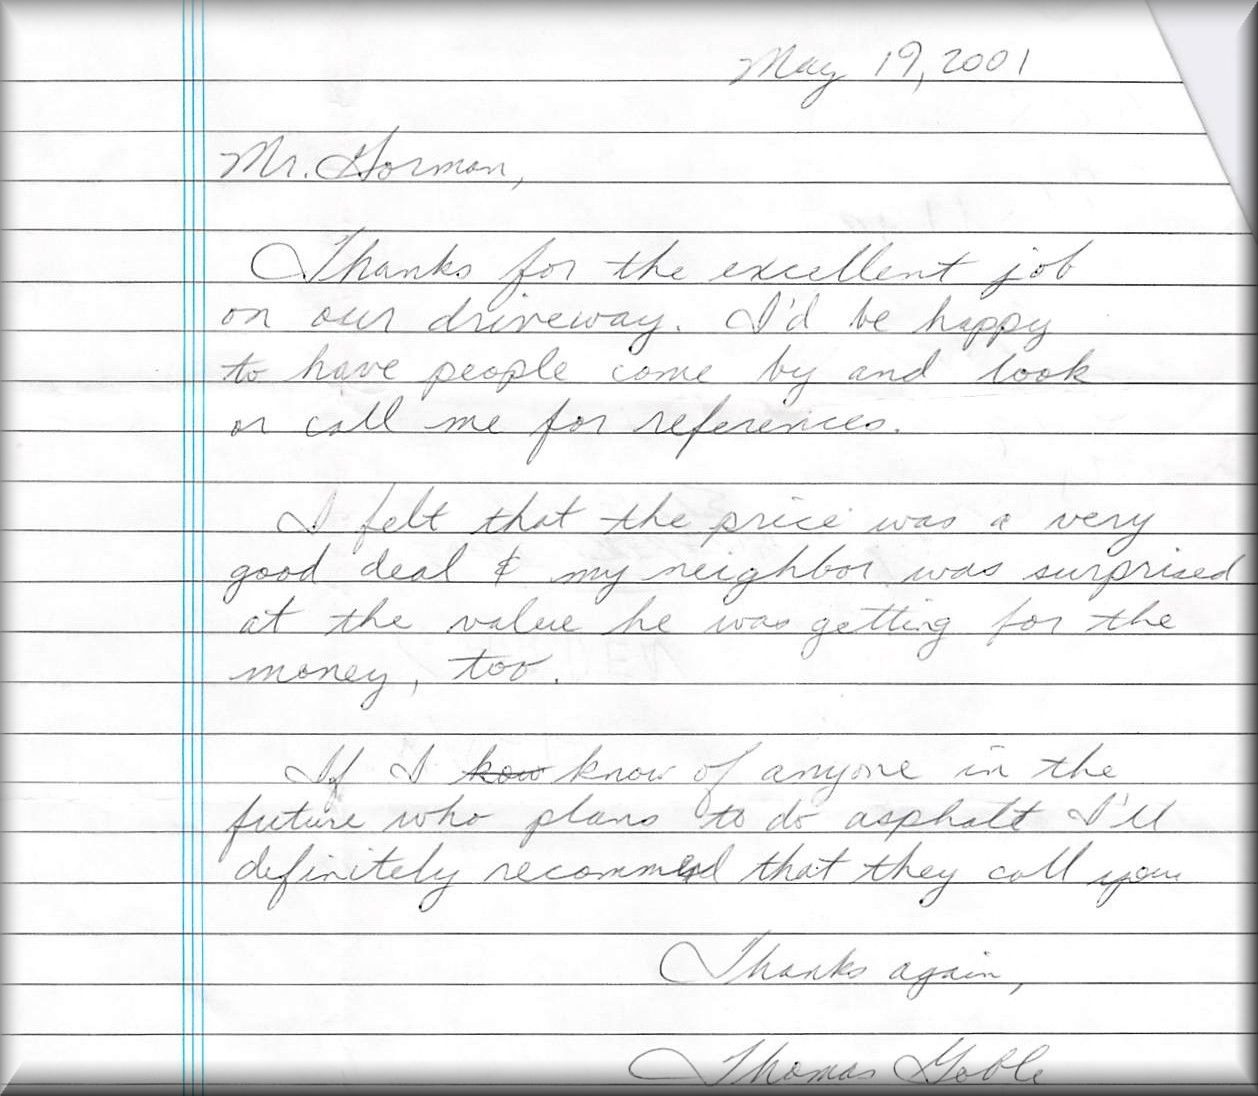 May 19, 2001
Mr. Gorman,
Thanks for the excellent job
on our driveway. I'd be happy
to have people come by and look
or call me for references.
I felt that the price was a very
good deal & my neighbor was surprised
at the value he was getting for the
money, too.
If I kow know of anyone in the
future who plans to do asphalt I'll
definitely recommend that they call you
Thanks again,
Thomas Goble